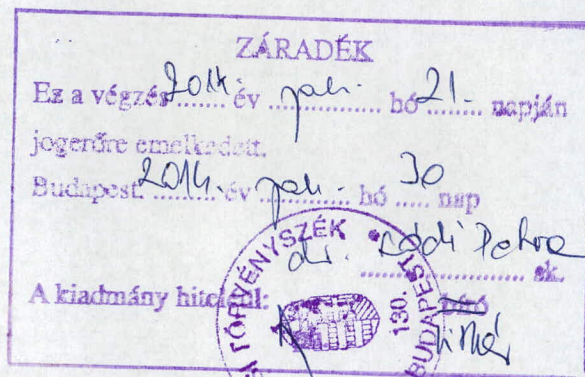 ZÁRADÉK
Ez a végzés 2014. év jan. hó 21. napján
jogerőre emelkedett.
Budapest. 2014. év jan. hó 30 nap
dr. Petra sk.
A kiadmány hiteléül: bíró
titkár
TÖRVÉNYSZÉK
130.
BUDAPEST